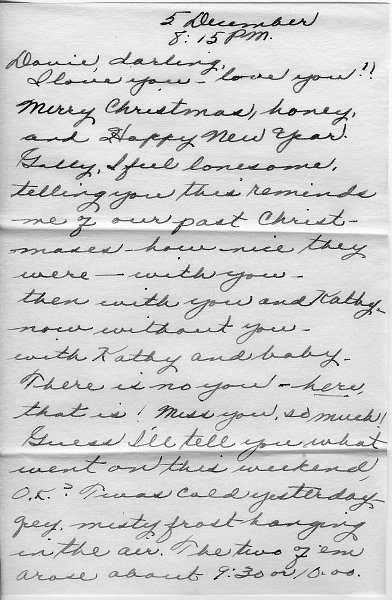 5 December
8:15 PM.
Davie darling,
I love you - love you!!
Merry Christmas, honey,
and Happy New Year.
Golly, I feel lonesome,
telling you this reminds
me of our past Christ-
mases - how nice they
were - with you -
then with you and Kathy -
now without you -
with Kathy and baby -
There is no you - here,
that is! Miss you, so much!
Guess I'll tell you what
went on this weekend,
O.K.? Twas cold yesterday,
grey, misty frost hanging
in the air. The two of 'em
arose about 9:30 or 10:00.